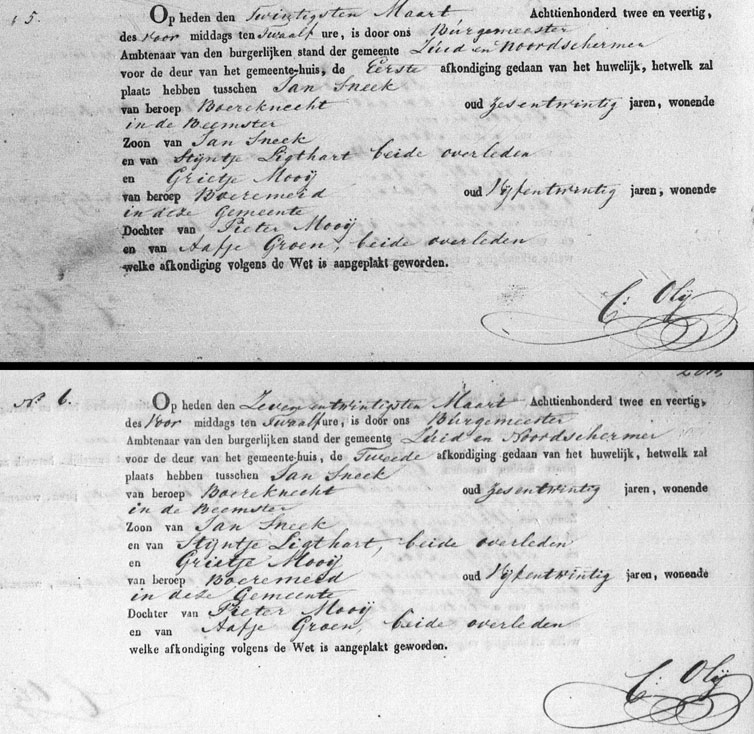 5.
Op heden den Twintigsten Maart Achttienhonderd twee en veertig,
des voor middags ten Twaalf ure, is door ons Burgemeester
Ambtenaar van den burgerlijken stand der gemeente Zuid en Noordschermer
voor de deur van het gemeente-huis, de Eerste afkondiging gedaan van het huwelijk, hetwelk zal
plaats hebben tusschen Jan Sneek
van beroep Boereknecht oud zesentwintig jaren, wonende
in de Beemster
Zoon van Jan Sneek
en van Stijntje Ligthart beide overleden
en Grietje Mooij
van beroep Boeremeid oud Vijfentwintig jaren, wonende
in deze Gemeente
Dochter van Pieter Mooij
en van Aafje Groen, beide overleden
welke afkondiging volgens de Wet is aangeplakt geworden.
C: Olij
No. 6.
Op heden den Zeven entwintigsten Maart Achttienhonderd twee en veertig,
des Voor middags ten Twaalf ure, is door ons Burgemeester
Ambtenaar van den burgerlijken stand der gemeente Zuid en Noordschermer
voor de deur van het gemeente-huis, de Tweede afkondiging gedaan van het huwelijk, hetwelk zal
plaats hebben tusschen Jan Sneek
van beroep Boereknecht oud zesentwintig jaren, wonende
in de Beemster
Zoon van Jan Sneek
en van Stijntje Ligthart, beide overleden
en Grietje Mooij
van beroep Boeremeid oud Vijfentwintig jaren, wonende
in deze Gemeente
Dochter van Pieter Mooij
en van Aafje Groen, beide overleden
welke afkondiging volgens de Wet is aangeplakt geworden.
C: Olij